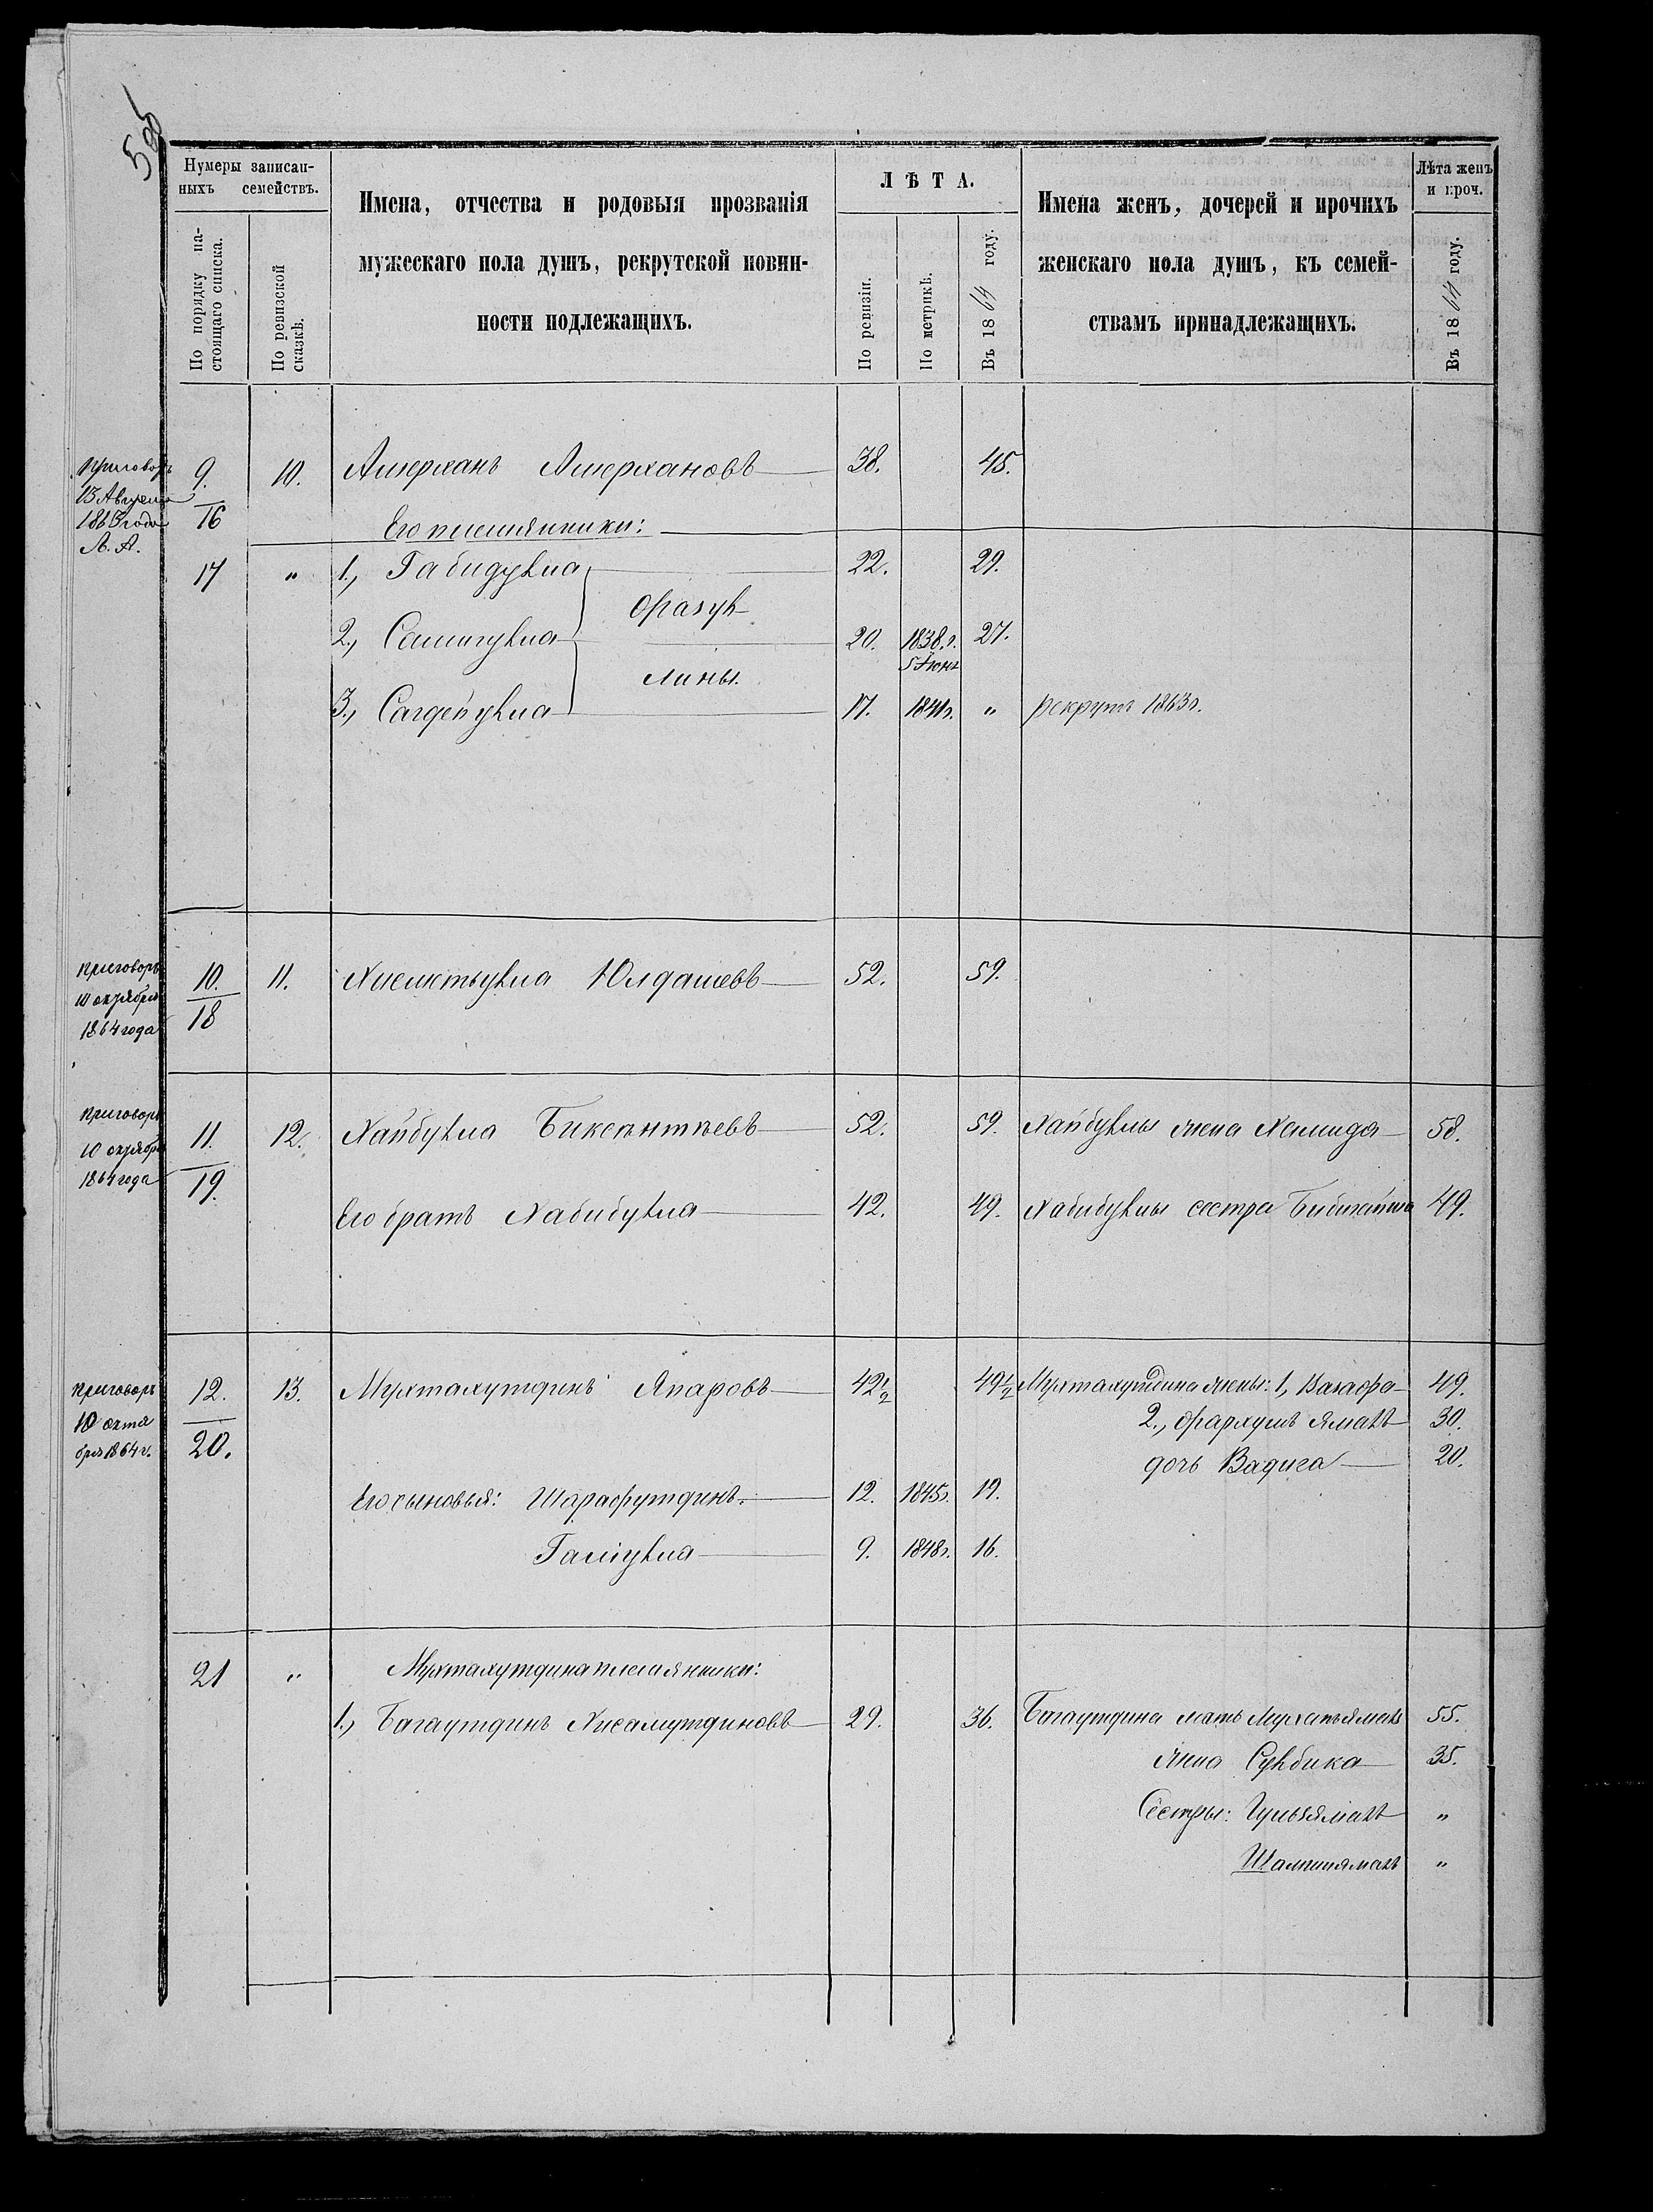 595
Нумеры записан-
ныхъ семействъ.
По порядку на-
стоящаго списка.
По ревизской
сказкѣ.
Имена, отчества и родовыя прозванія
мужескаго пола душъ, рекрутской повин-
ности подлежащихъ.
ЛѢТА.
По ревизіи.
По метрикѣ.
Въ 1864 году.
Имена женъ, дочерей и прочихъ
женскаго пола душъ, къ семей-
ствамъ принадлежащихъ.
Лѣта женъ
и проч.
Въ 1864 году.
Приговоръ
13 Августа
1863 года
Л. А.
9. 10. Амерханъ Амерхановъ 38. 45.
16
Его племянники:
17 " 1., Габидулла 22. 29.
Фазул-
2., Салигулла 20. 1838.г. 27.
5 Іюня
лины.
3., Сагдейулла 17. 1841г. " рекрутъ 1863г.
Приговоръ
10 октября
1864 года
10. 11. Юлдашевъ 52. 59.
18
Приговоръ
10 октября
1864 года
11. 12. Хайбулла Биксантѣевъ 52. 59. Хайбуллы жена Хамида 58.
19.
Его братъ Хабибулла 42. 49. Хабибуллы сестра 49.
Приговоръ
10 октя
бря 1864 г.
12. 13. Мухтахутдинъ Япаровъ 42½ 49½ Мухтахутдина жены: 1, 49.
2., 30.
20.
дочь Вадига 20.
Его сыновья: Шарафутдинъ. 12. 1845г. 19.
Галіулла 9. 1848г. 16.
21 " Мухтахутдина племянники:
1., Багаутдинъ Хисамутдиновъ 29. 36. Багаутдина мать 55.
жена Сулбика 35.
Сестры: Гульзямалъ "
"